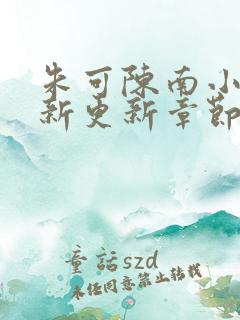 朱可陳南小
新更新章節
童話szd
未经同意禁止转载